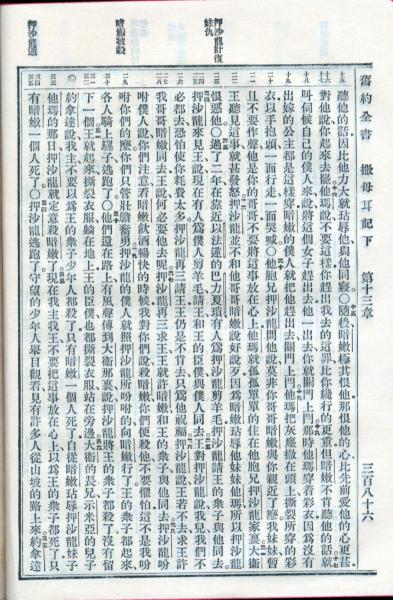 舊約全書　撒母耳記下　第十三章　三百八十六
押沙龍計復妹仇
暗嫩被殺
押沙龍逃
聽他的話因比他力大就玷辱他與他同寢○隨後暗嫩極其恨他那恨他的心比先前愛他的心更甚
對他說你起來去罷他瑪說不要這樣你趕出我去的這罪比你纔行的更重但暗嫩不肯聽他的話就
叫伺候自己的僕人來說將這個女子趕出去他一出去你就關門上閂那時他瑪穿着彩衣因爲沒有
出嫁的公主都是這樣穿暗嫩的僕人就把他趕出去關門上閂他瑪把灰塵撒在頭上撕裂所穿的彩
衣以手抱頭一面行走一面哭喊○他胞兄押沙龍問他說莫非你哥哥暗嫩與你親近了麼我妹妹暫
且不要作聲他是你的哥哥不要將這事放在心上他瑪就孤孤單單的住在他胞兄押沙龍家裏大衛
王聽見這事就甚發怒押沙龍並不和他哥哥暗嫩說好說歹因爲暗嫩玷辱他妹妹他瑪所以押沙龍
恨惡他○過了二年在靠近以法蓮的巴力夏瑣有人爲押沙龍剪羊毛押沙龍請王的衆子與他同去
押沙龍來見王說現在有人爲僕人剪羊毛請王和王的臣僕與僕人同去王對押沙龍說我兒我們不
必都去恐怕使你耗費太多押沙龍再三請王王仍是不肯去只爲他祝福押沙龍說王若不去求王許
我哥哥暗嫩同去王說何必要他去呢押沙龍再三求王王就許暗嫩和王的衆子與他同去押沙龍吩
咐僕人說你們注意看暗嫩飲酒暢快的時候我對你們說殺暗嫩你們便殺他不要懼怕這不是我吩
咐你們的麼你們只管壯膽奮勇押沙龍的僕人就照押沙龍所吩咐的向暗嫩行了王的衆子都起來
各人騎上騾子逃跑了○他們還在路上有風聲傳到大衛那裏說押沙龍將王的衆子都殺了沒有留
下一個王就起來撕裂衣服躺在地上王的臣僕也都撕裂衣服站在旁邊大衛的長兄示米亞的兒子
約拿達說我主不要以爲王的衆子少年人都殺了只有暗嫩一個人死了自從暗嫩玷辱押沙龍妹子
他瑪的那日押沙龍就定意殺暗嫩了現在我主我王不要把這事放在心上以爲王的衆子都死了只
有暗嫩一個人死了○押沙龍逃跑了守望的少年人舉目觀看見有許多人從山坡的路上來約拿達